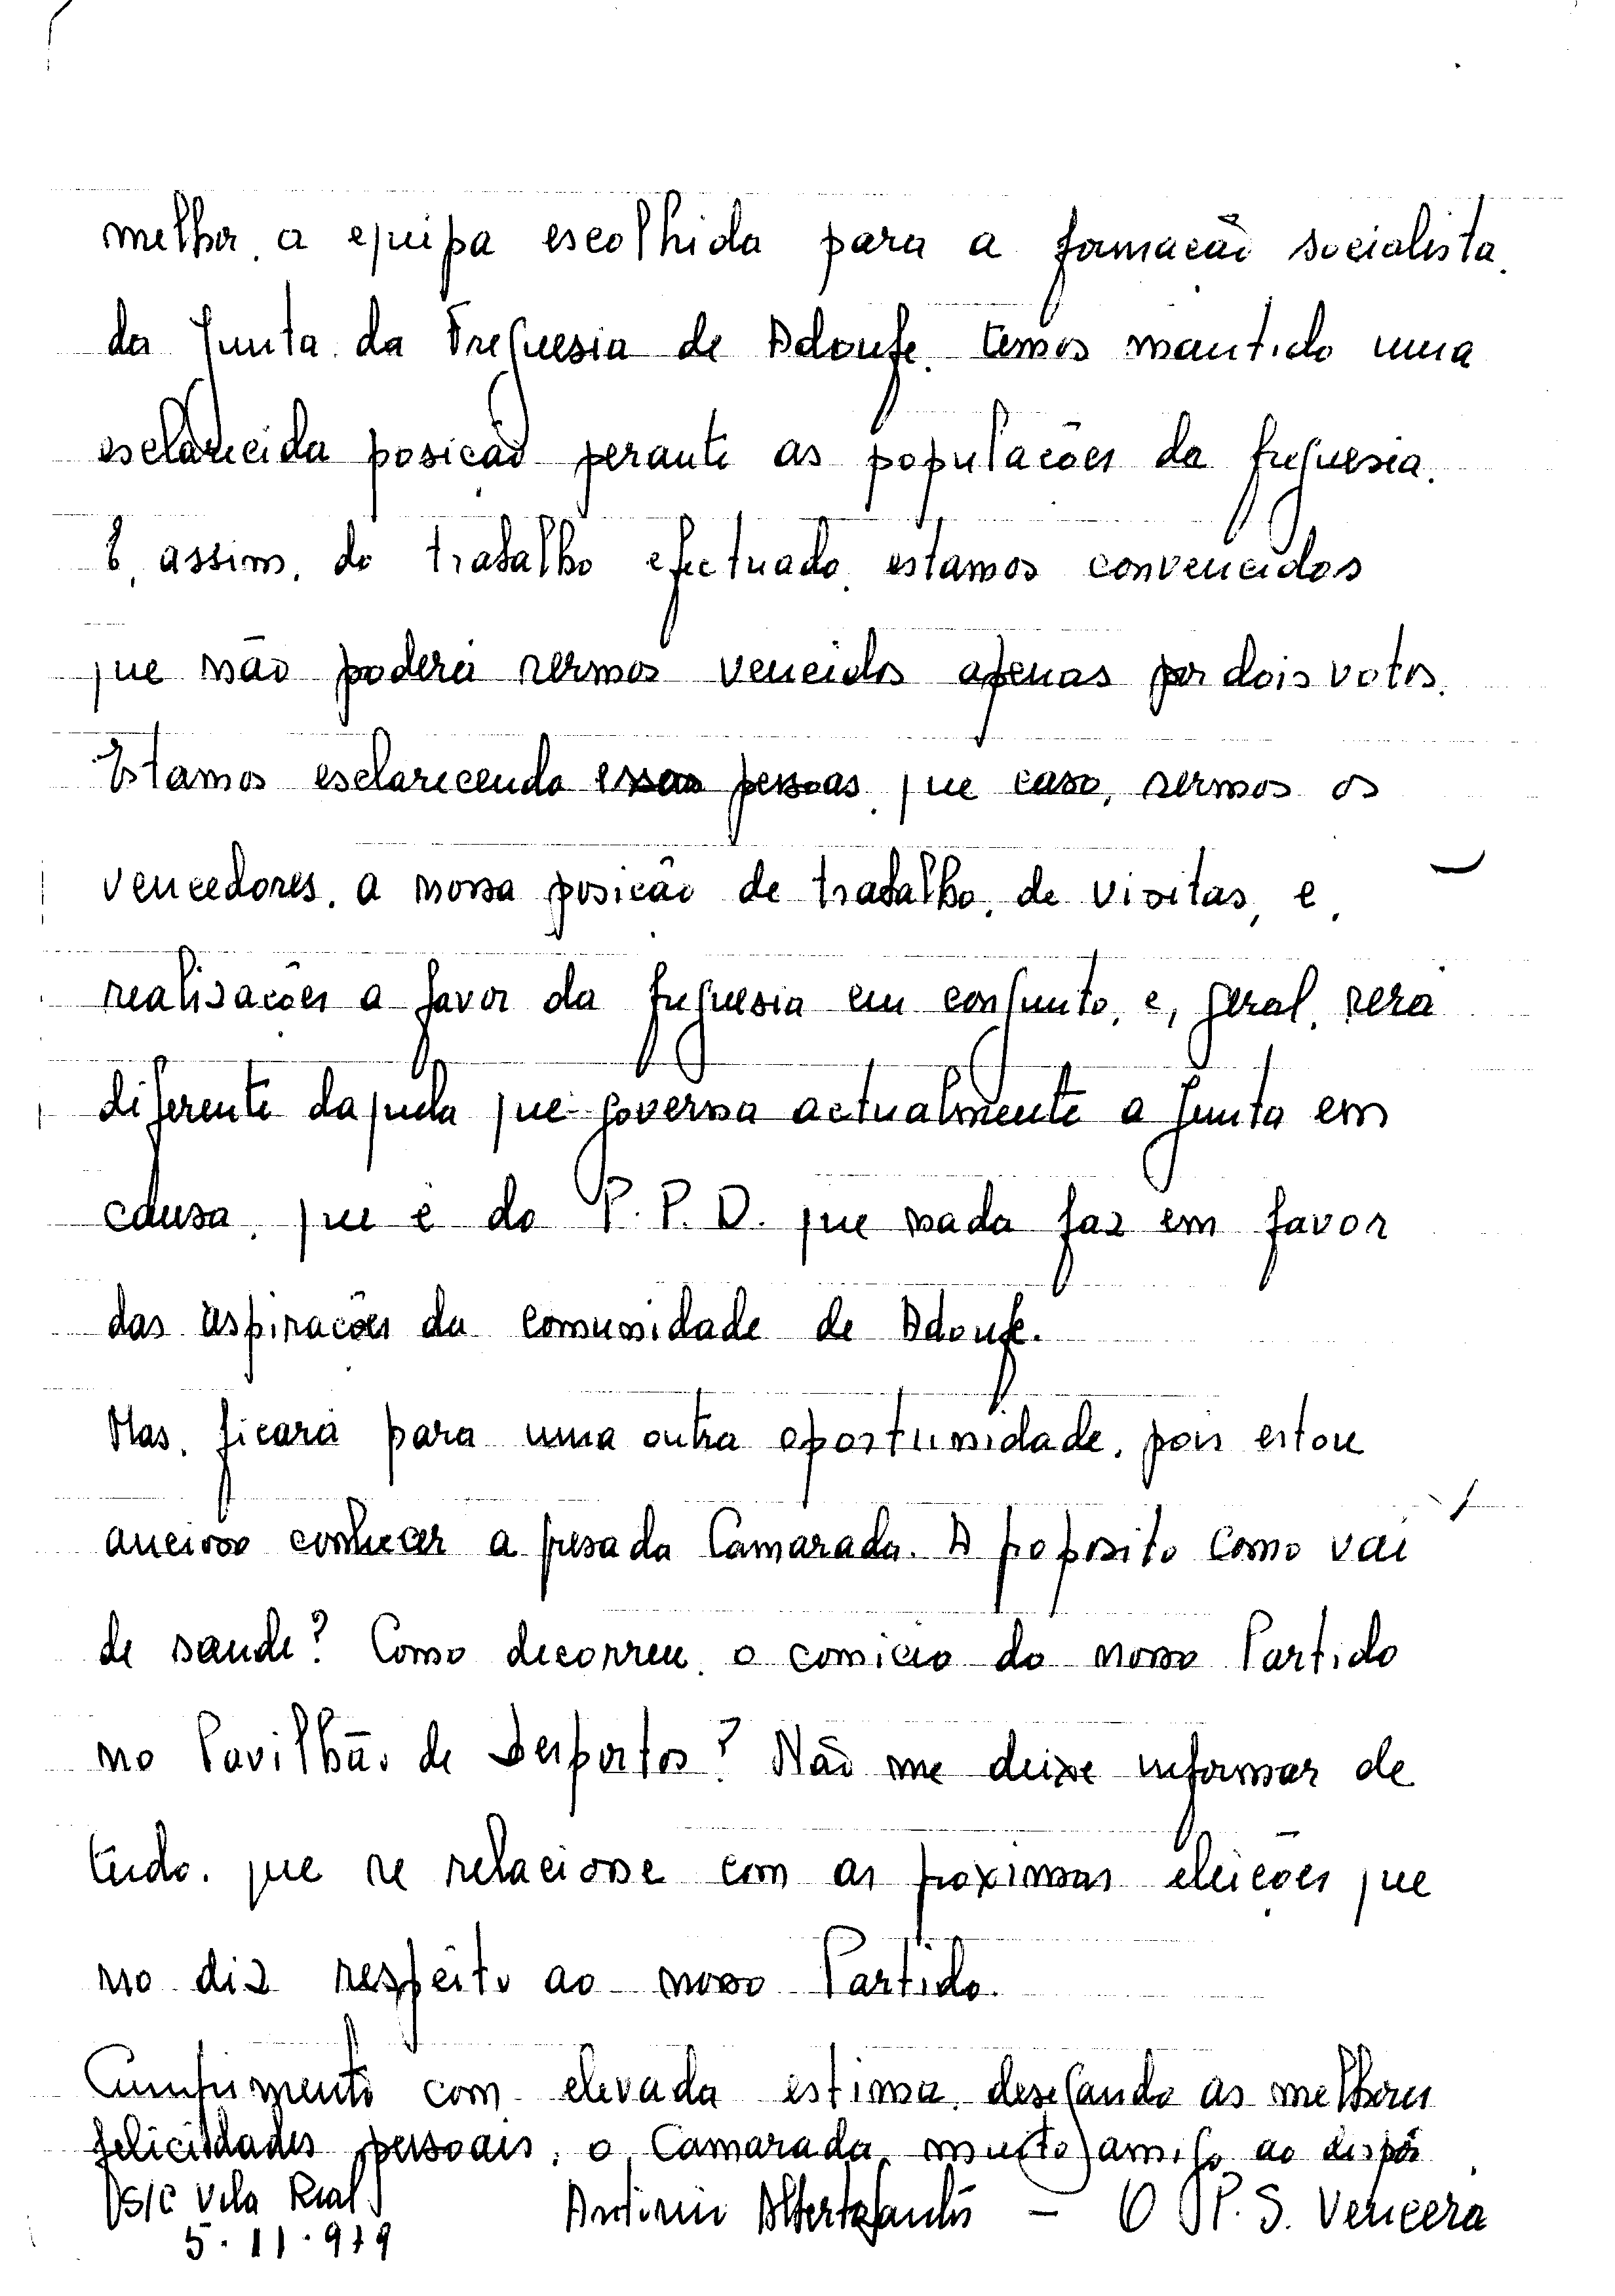 melhor, a equipa escolhida para a formação socialista,
da Junta da Freguesia de Adoufe, temos mantido uma
esclarecida posição perante as populações da freguesia.
E, assim, do trabalho efectuado, estamos convencidos
que não poderá sermos vencidos apenas por dois votos.
Estamos esclarecendo essas pessoas, que caso, sermos os
vencedores, a nossa posição de trabalho, de visitas, e,
realisações a favor da freguesia em conjunto, e, geral, será
diferente daquela que governa actualmente a Junta em
causa, que é do P.P.D. que nada faz em favor
das aspirações da comunidade de Adoufe.
Mas, ficará para uma outra oportunidade, pois estou
ancioso conhecer a presada Camarada. A proposito como vai
de saude? Como decorreu, o comicio do nosso Partido
no Pavilhão de Desportos? Não me deixe informar de
tudo, que se relacione com as proximas eleições que
no diz respeito ao nosso Partido.
Cumprimento com elevada estima, desejando as melhores
felicidades pessoais, o Camarada, muito amigo ao dispôr
S/C Vila Real
António Alberto - O P.S. Vencerá
5.11.979